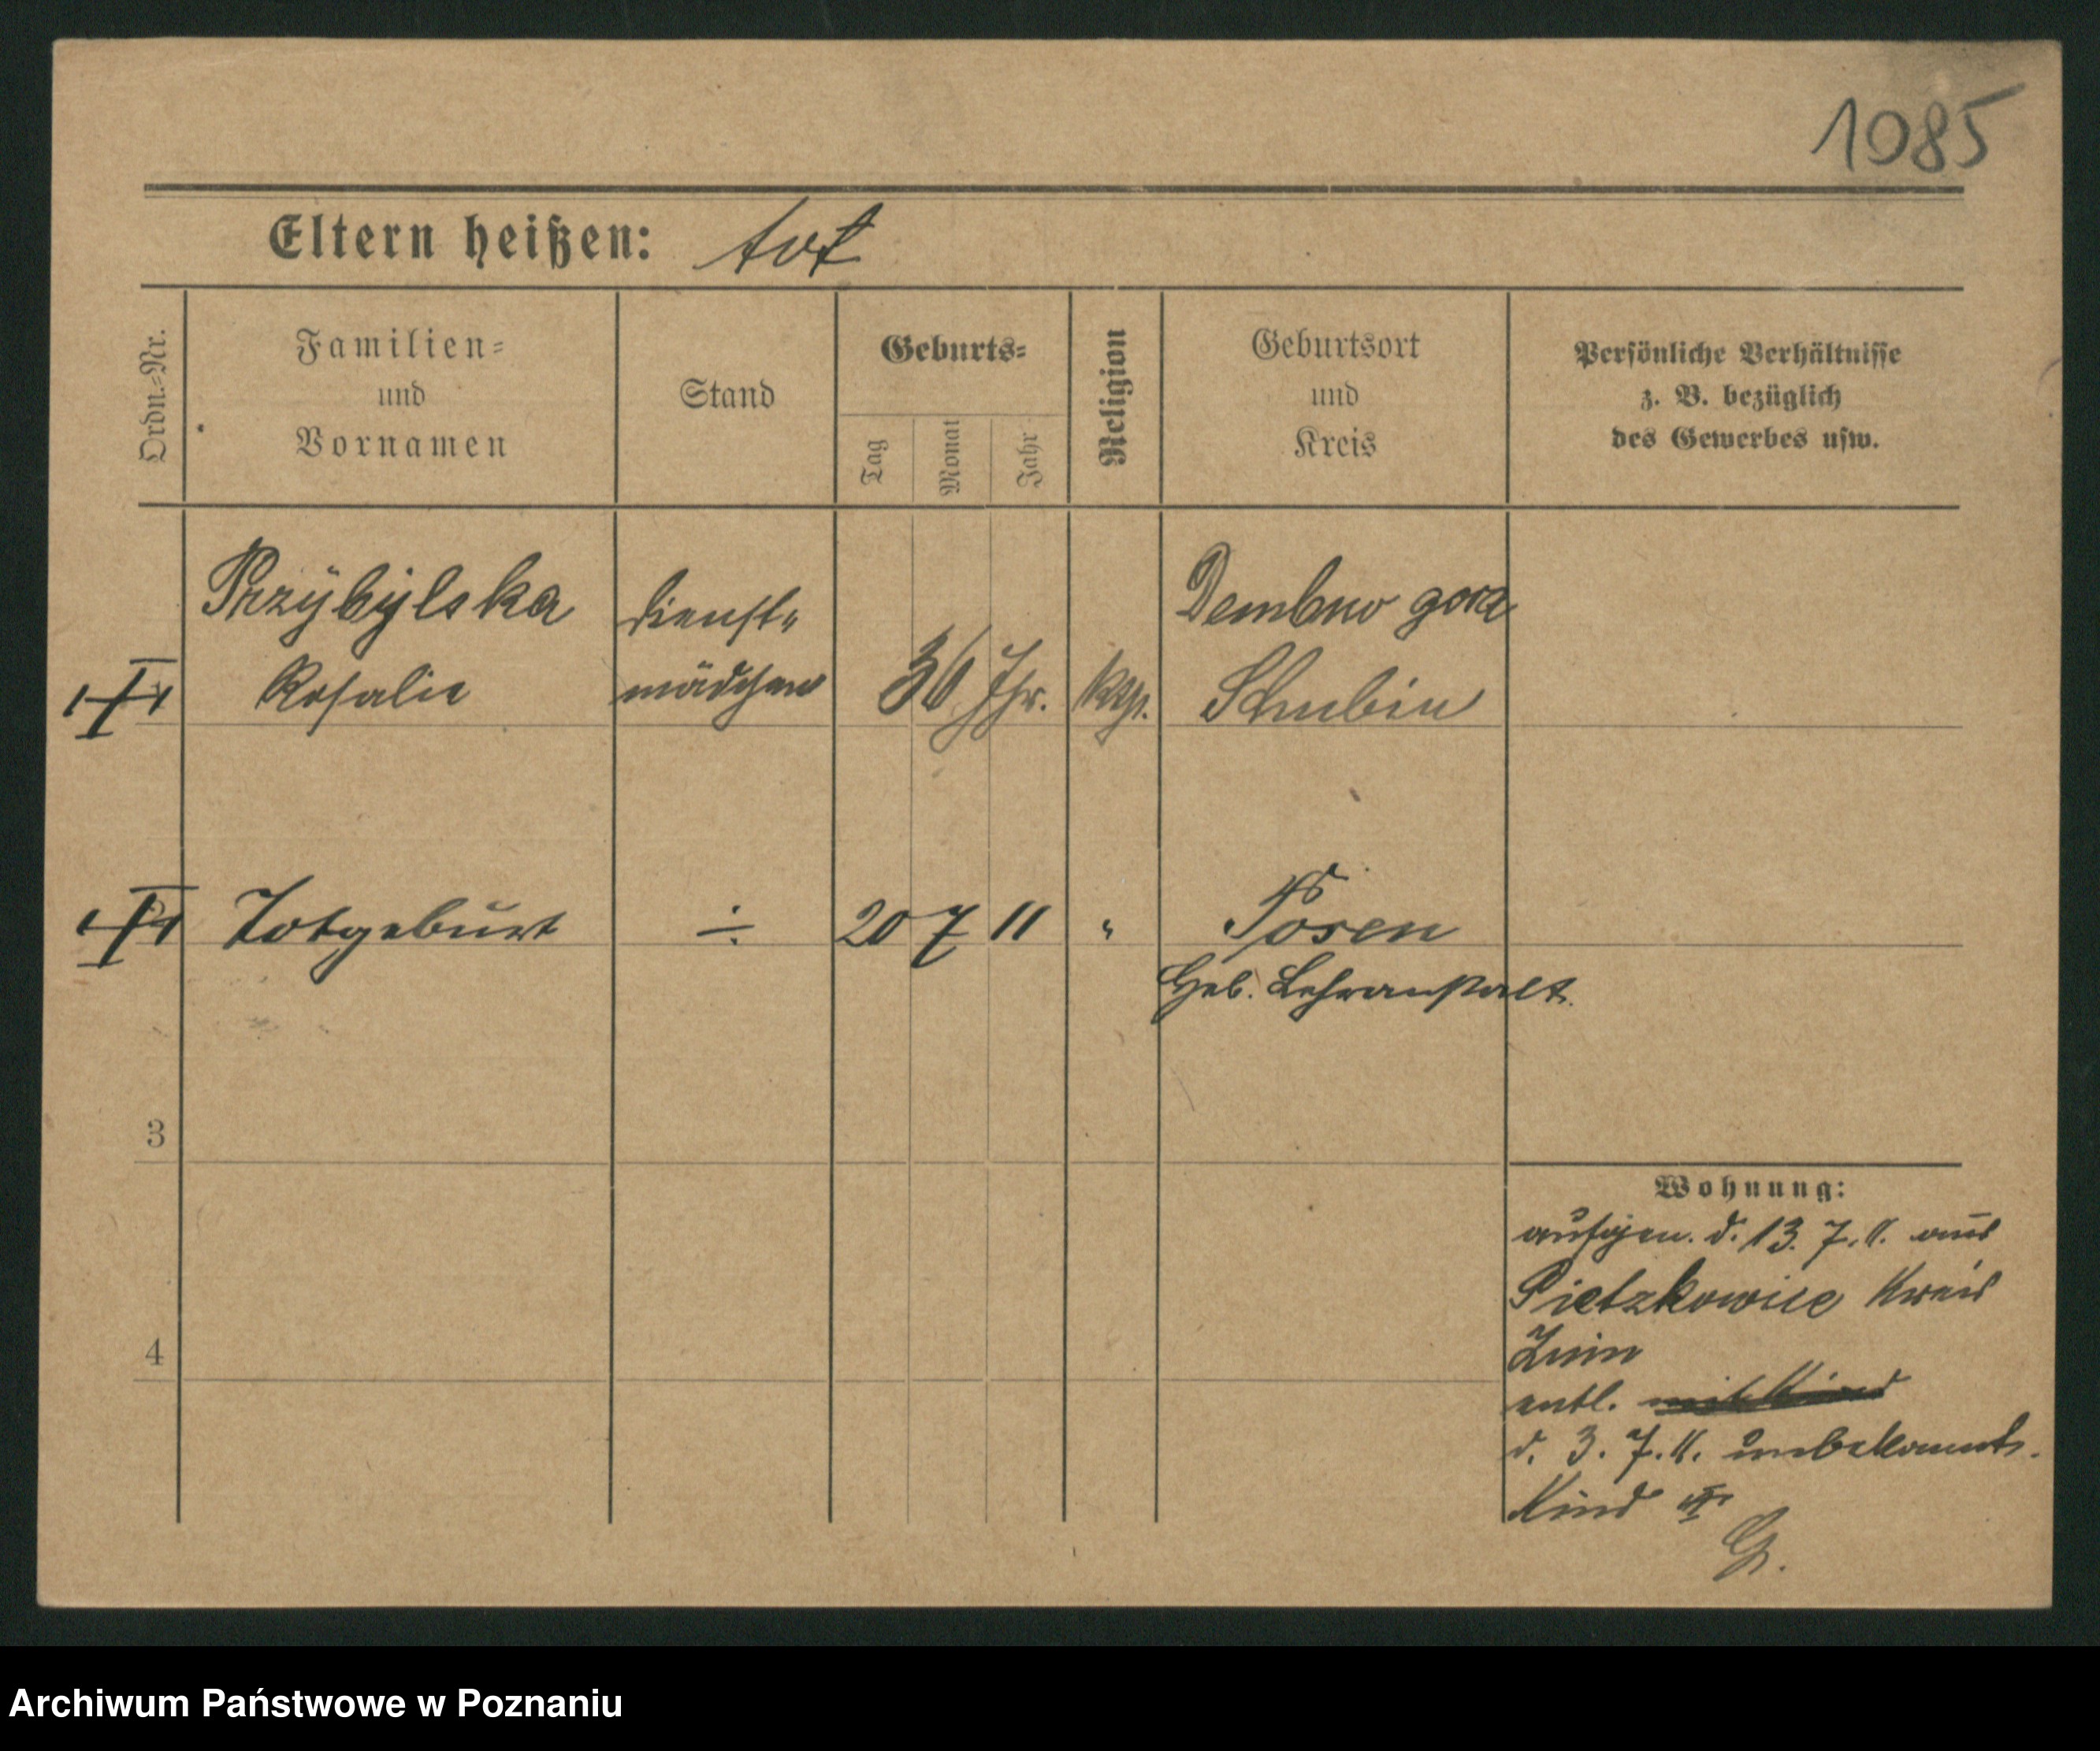 1085
Eltern heißen: tot
Ordn.-Nr.
Familien-
und
Vornamen
Stand
Geburts-
Tag
Monat
Jahr
Religion
Geburtsort
und
Kreis
Persönliche Verhältnisse
z. B. bezüglich
des Gewerbes usw.
Przybylska
Rosalie
Dienst-
mädchen
36 Jhr.
kth.
Dembno gora
Schubin
Totgeburt
÷
20 7 11
"
Posen
Heb. Lehranstalt.
3
4
Wohnung:
aufgen. d. 13. 7. 11. aus
Pietzkowice Kreis
Znin
entl. mit Kind
d. 3. 7. 11. unbekannt.
Kind
G.